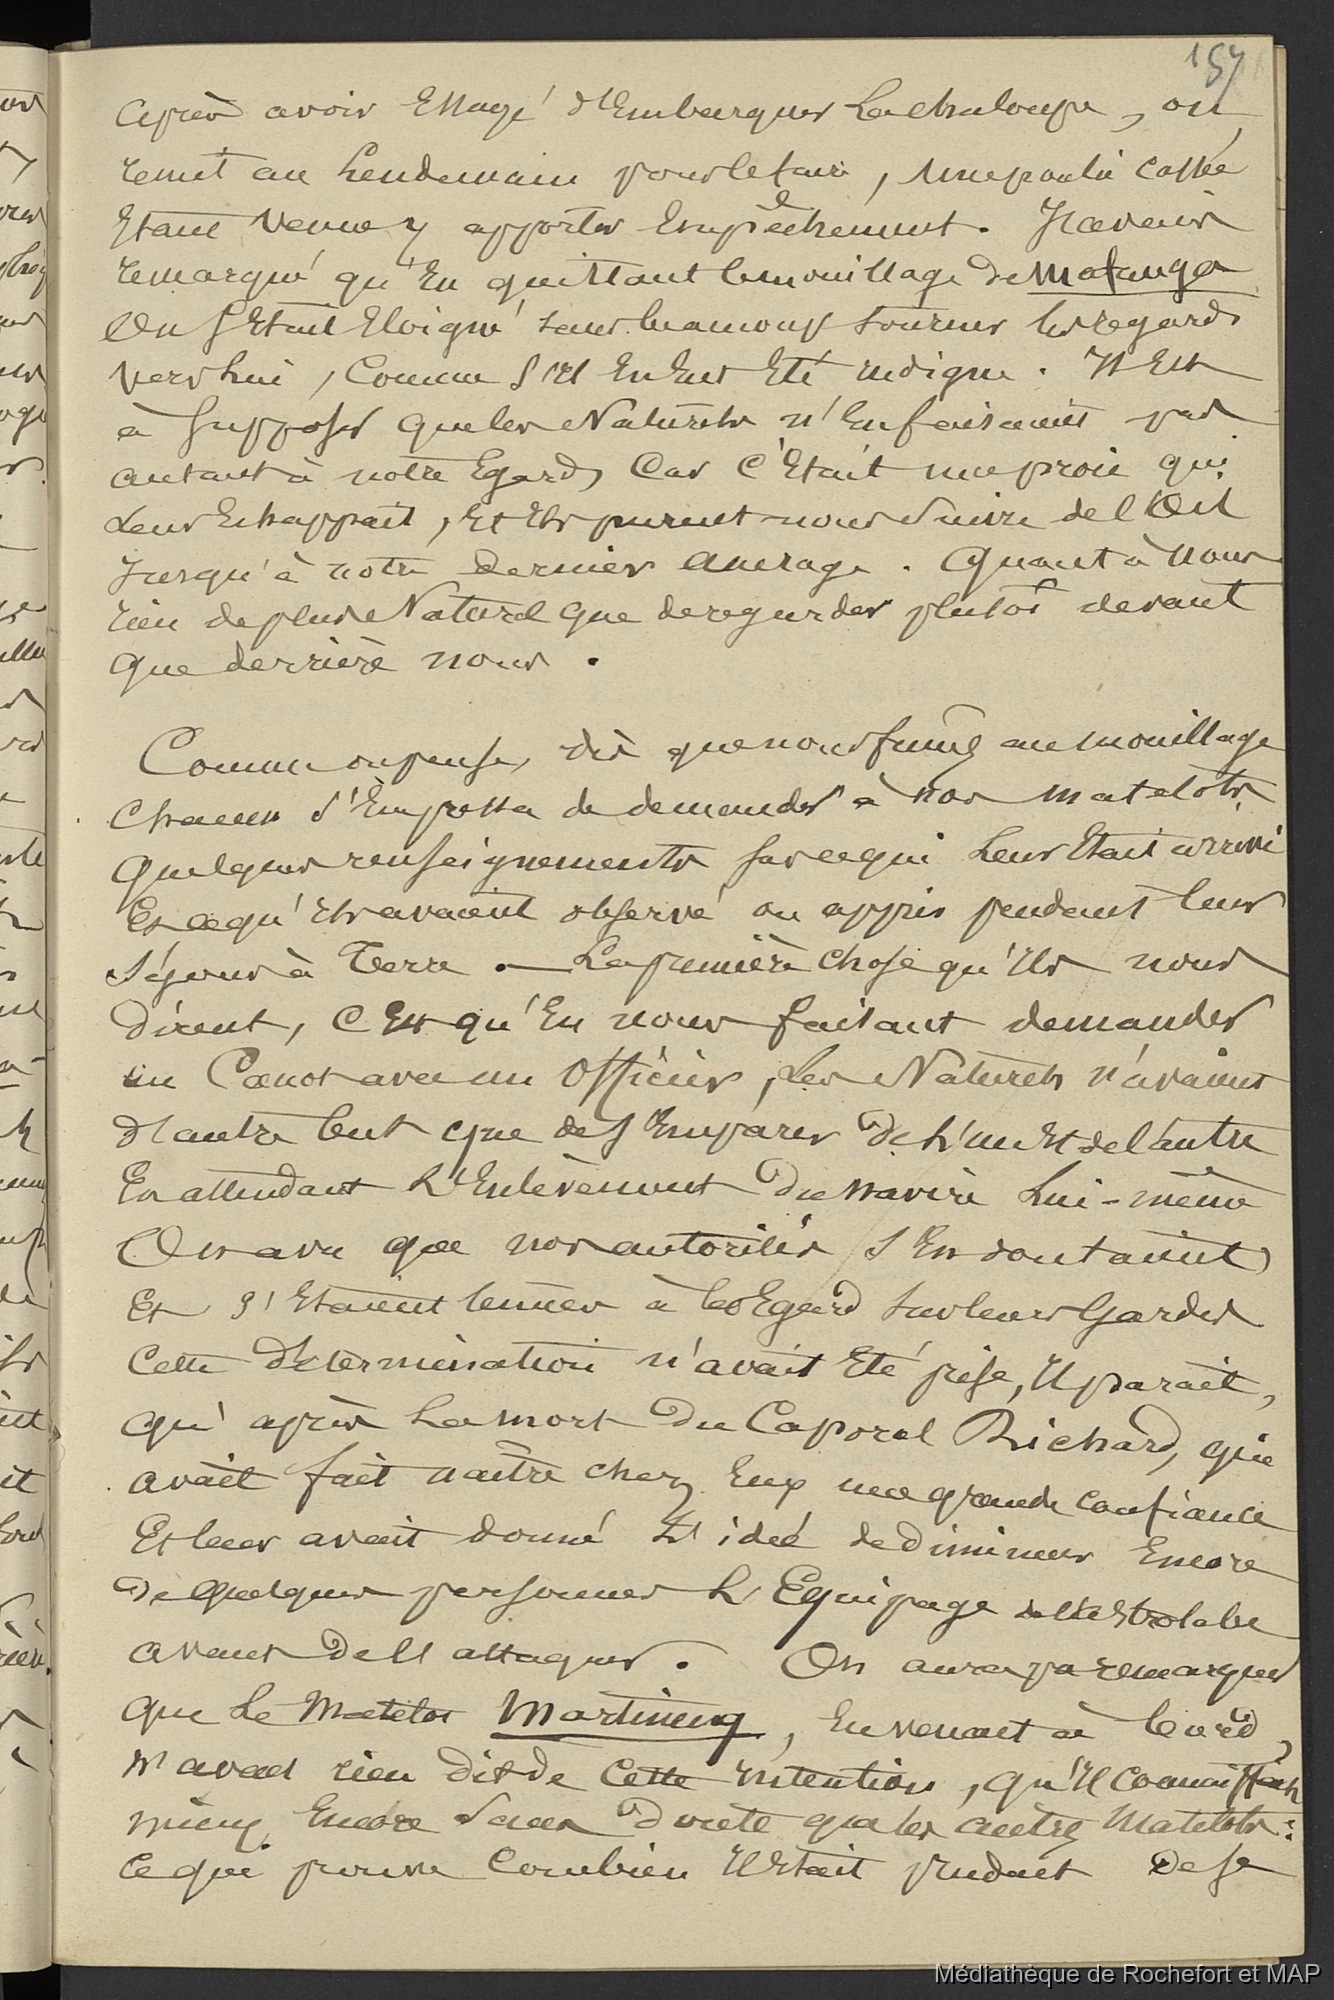 157
Après avoir Essayé d'Embarquer La chaloupe, on
remit au Lendemain pour le faire, Une poulie cassée
Etant Venue y apporter Empêchement. J'avais
remarqué qu'En quittant le mouillage de Mafanga
On s'Etait Eloigné sans beaucoup tourner les regards
vers Lui, Comme s'il En Eut Eté indigne. Il Est
à supposer que les Naturels n'En faisaient pas
autant à notre Egard, Car C'Etait une proie qui
Leur Echappait, Et Ils purent nous suivre de l'Œil
Jusqu'à notre dernier Ancrage. Quant à nous
rien de plus Naturel que de regarder plutôt devant
que derrière nous.
Comme on pense, dès que nous fûmes au mouillage
Chacun s'Empressa de demander à nos matelots
quelques renseignements sur ce qui Leur Etait arrivé
Et ce qu'Ils avaient observé ou appris pendant leur
séjour à Terre. — La première chose qu'Ils nous
dirent, C'Est qu'En nous faisant demander
un Canot avec un Officier, Les Naturels n'avaient
d'autre but que de s'Emparer de L'un Et de l'autre
En attendant L'Enlèvement du navire Lui-même
On a vu que nos autorités s'En doutaient
Et s'Etaient tenues à cet Egard sur leurs Gardes
Cette détermination n'avait Eté prise, Il parait,
qu'après La mort du Caporal Richard, qui
avait fait naître chez Eux une grande confiance
Et leur avait donné L'idée de Diminuer Encore
de quelques personnes L'Equipage de l'Astrolabe
avant de l'attaquer. On aura pu remarquer
que Le Matelot Martineng, En venant à bord,
n'avait rien dit de cette intention, qu'Il connaissait
mieux Encore sans doute que les autres Matelots :
Ce qui prouve Combien Il Etait prudent de se
Médiathèque de Rochefort et MAP